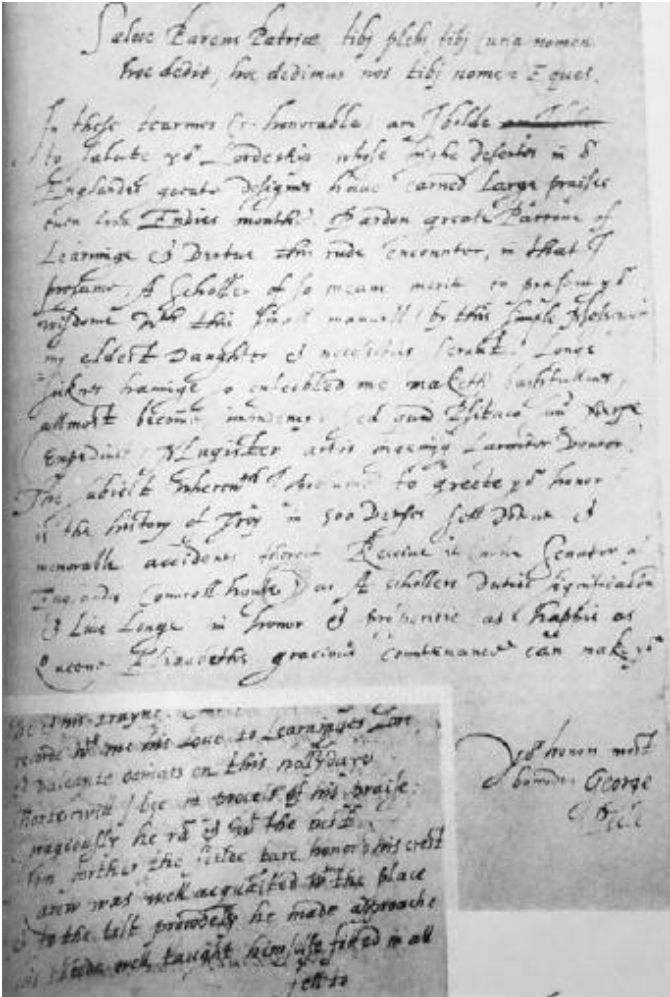 Salue Parens Patriæ, tibj plebs tibj Curia nomen
hoc dedit, hoc dedimus nos tibj nomen Eques.
In these tearmes (r. honorable) am I bolde
to salute yor Lordeship whose highe deserts in or
Englandes greate designes haue earned large praises
euen from Enuies mouthe. Pardon greate Patrone of
Learninge & Vertue this rude encounter, in that I
presume, A Scholler of so meane merit to present yor
wisdome wth this small manuell by this simple Messenger
my eldest Daughter & necessities seruant. Longe
siknes hauinge so enfeebled me maketh bashfullnes
allmost become impudency. Sed quis Psitaco suum χαιρε
Expediuit? Magister artis ingenijq Largitor Venter.
The subiect wherewth I presume to greete yor honor
is the history of Troy in 500 verses sett downe &
memorable accidents thereof. Receiue it Senator of
Englandes Councell house as A schollers duties signification
& Liue Longe in honor & prosperitie as happie as
Queene Elizabeths gracious countenance can make yow
Yor honors most
bounden George
Peele
his trayne
recorde wth me his Loue to Learninges Lore
& valeante deinats on this hollydaye
Horse will I bee in process of his praise:
he ran & the
the feilde bare honor on his crest
was well acquaited wth the place
& to the tilt prowdely he made approache
his steede well taught himselfe fitted in all